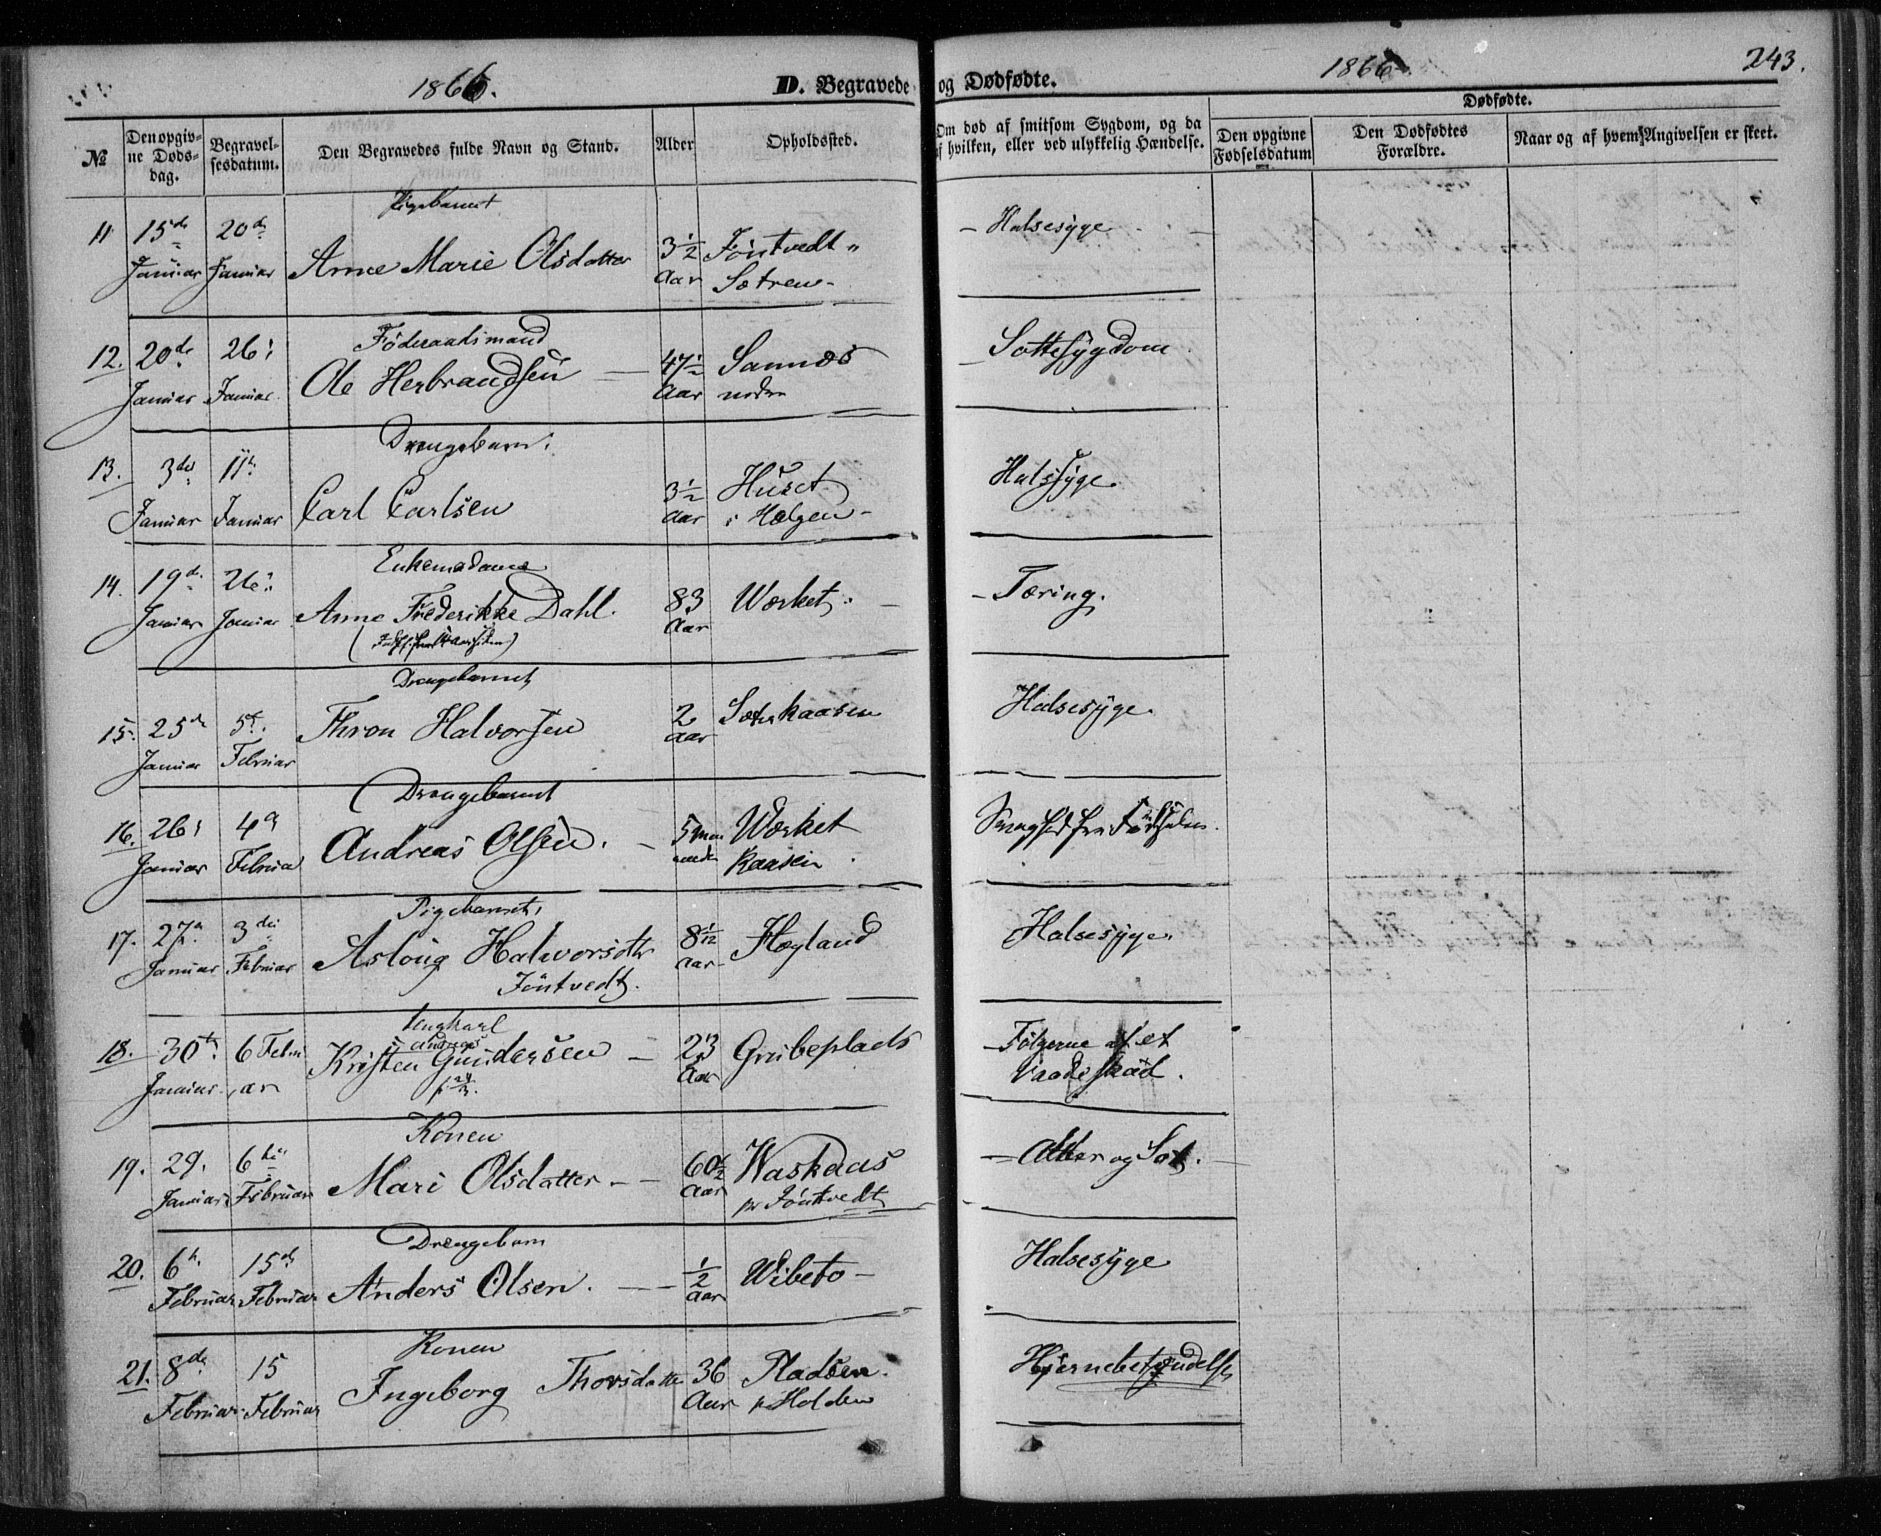 1866. D. Begravede og Dødfødte. 1866 243.
№ Den opgivne Dødsdag. Begravelsesdatum. Den Begravedes fulde Navn og Stand. Alder Opholdssted. Om død af smitsom Sygdom, og da af hvilken, eller ved ulykkelig Hændelse. Dødfødte.
Den opgivne Fødselsdatum Den Dødfødtes Forældre. Naar og af hvem Angivelsen er skeet.
Pigebarnet
11 15de 20de Anne Marie Olsdatter 3½ Föntvedt Halsesyge
Januar Januar Aar Sætren
Föderaadsmand
12. 20de 26 Ole Herbrandsen 47½ Sannes Sottesygdom
Januar Januar Aar nedre
Drengebarn
13. 3de 11te Carl Carlsen 3½ Huset Halssyge.
Januar Januar Aar i Hælgen
Enkemadame
14. 19de 26 Anne Frederikke Dahl. 83 Værket Tæring.
Januar Januar Aar
Drengebarnet
15. 25de 5te Thron Halvorsen 2 Sæterkaasen Halsesyge.
Januar Februar Aar
Drengebarnet
16. 26 4de Andreas Olsen. 5 maa Værket Svaghed fra Fødselen.
Januar Februar neder Kaasen
Pigebarnet
17. 27de 3die Aslöug Halvorsdtr 8 1/12 Höyland Halsesyge.
Januar Februar Föntvedt. Aar
Ungkarl
Andreas
18. 30te 6 Febru Kristen Gundersen 23 Grubeplads Følgerne af et
Januar ar Aar Vaadeskud.
Konen
19. 29. 6te Mari Olsdatter 60½ Waskaas Alder og Sot.
Januar Februar Aar pr Föntvedt
Drengebarn
20. 6te 15de Anders Olsen. ½ Wibeto Halsesyge
Februar Februar Aar
Konen
21. 8de 15 Ingeborg Thorsdatter 36 Pladsen Hjernebetændelse
Februar Februar Aar p Holden